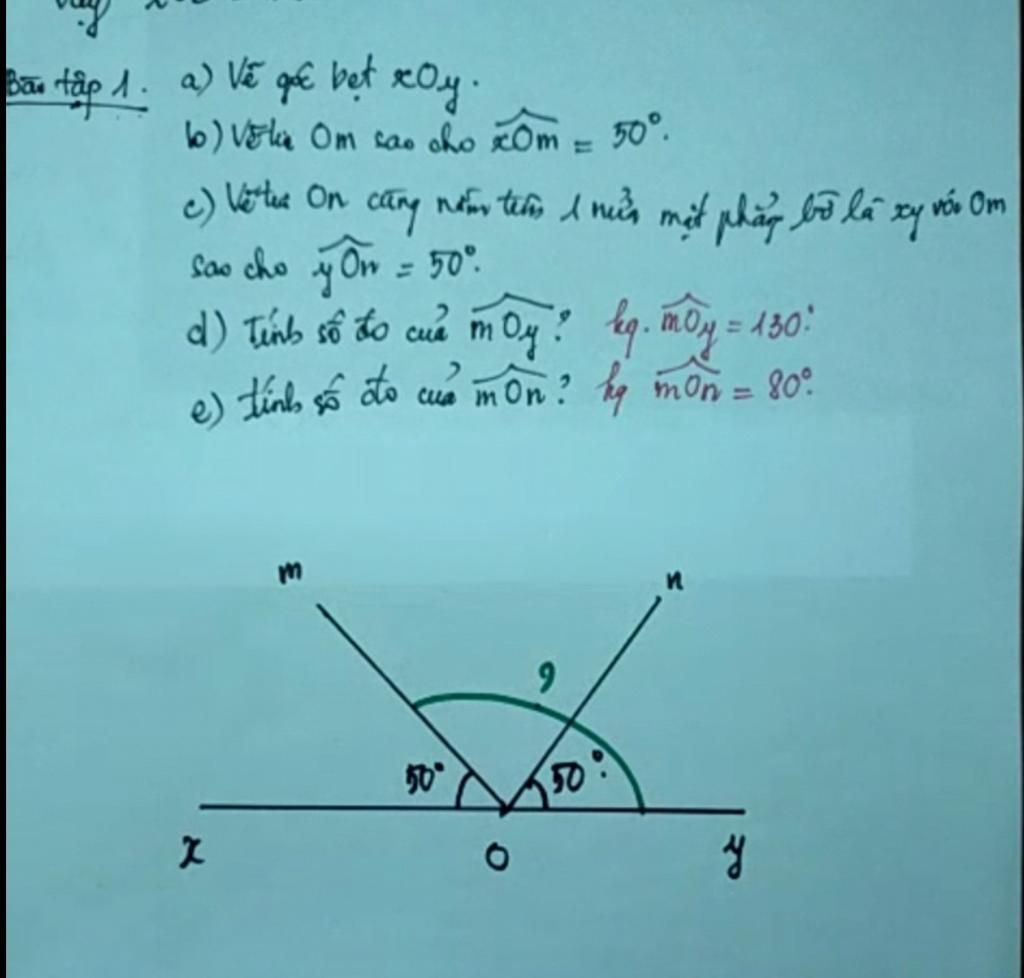 Bài tập 1. a) Vẽ góc bẹt xOy.
b) Vẽ tia Om sao cho xOm = 50°.
c) Vẽ tia On cùng nằm trên 1 nửa mặt phẳng bờ là xy với Om
sao cho yOn = 50°.
d) Tính số đo của mOy? kq. mOy = 130°.
e) tính số đo của mOn? kq mOn = 80°.
m
n
?
50°
50°.
x
O
y